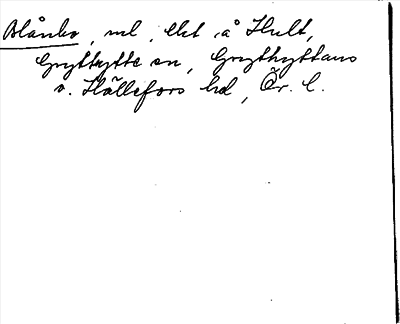 Blånbo, ml, Ekt å Hult,
Grythytte sn, Grythyttans
o. Hällefors hd, Ör. l.